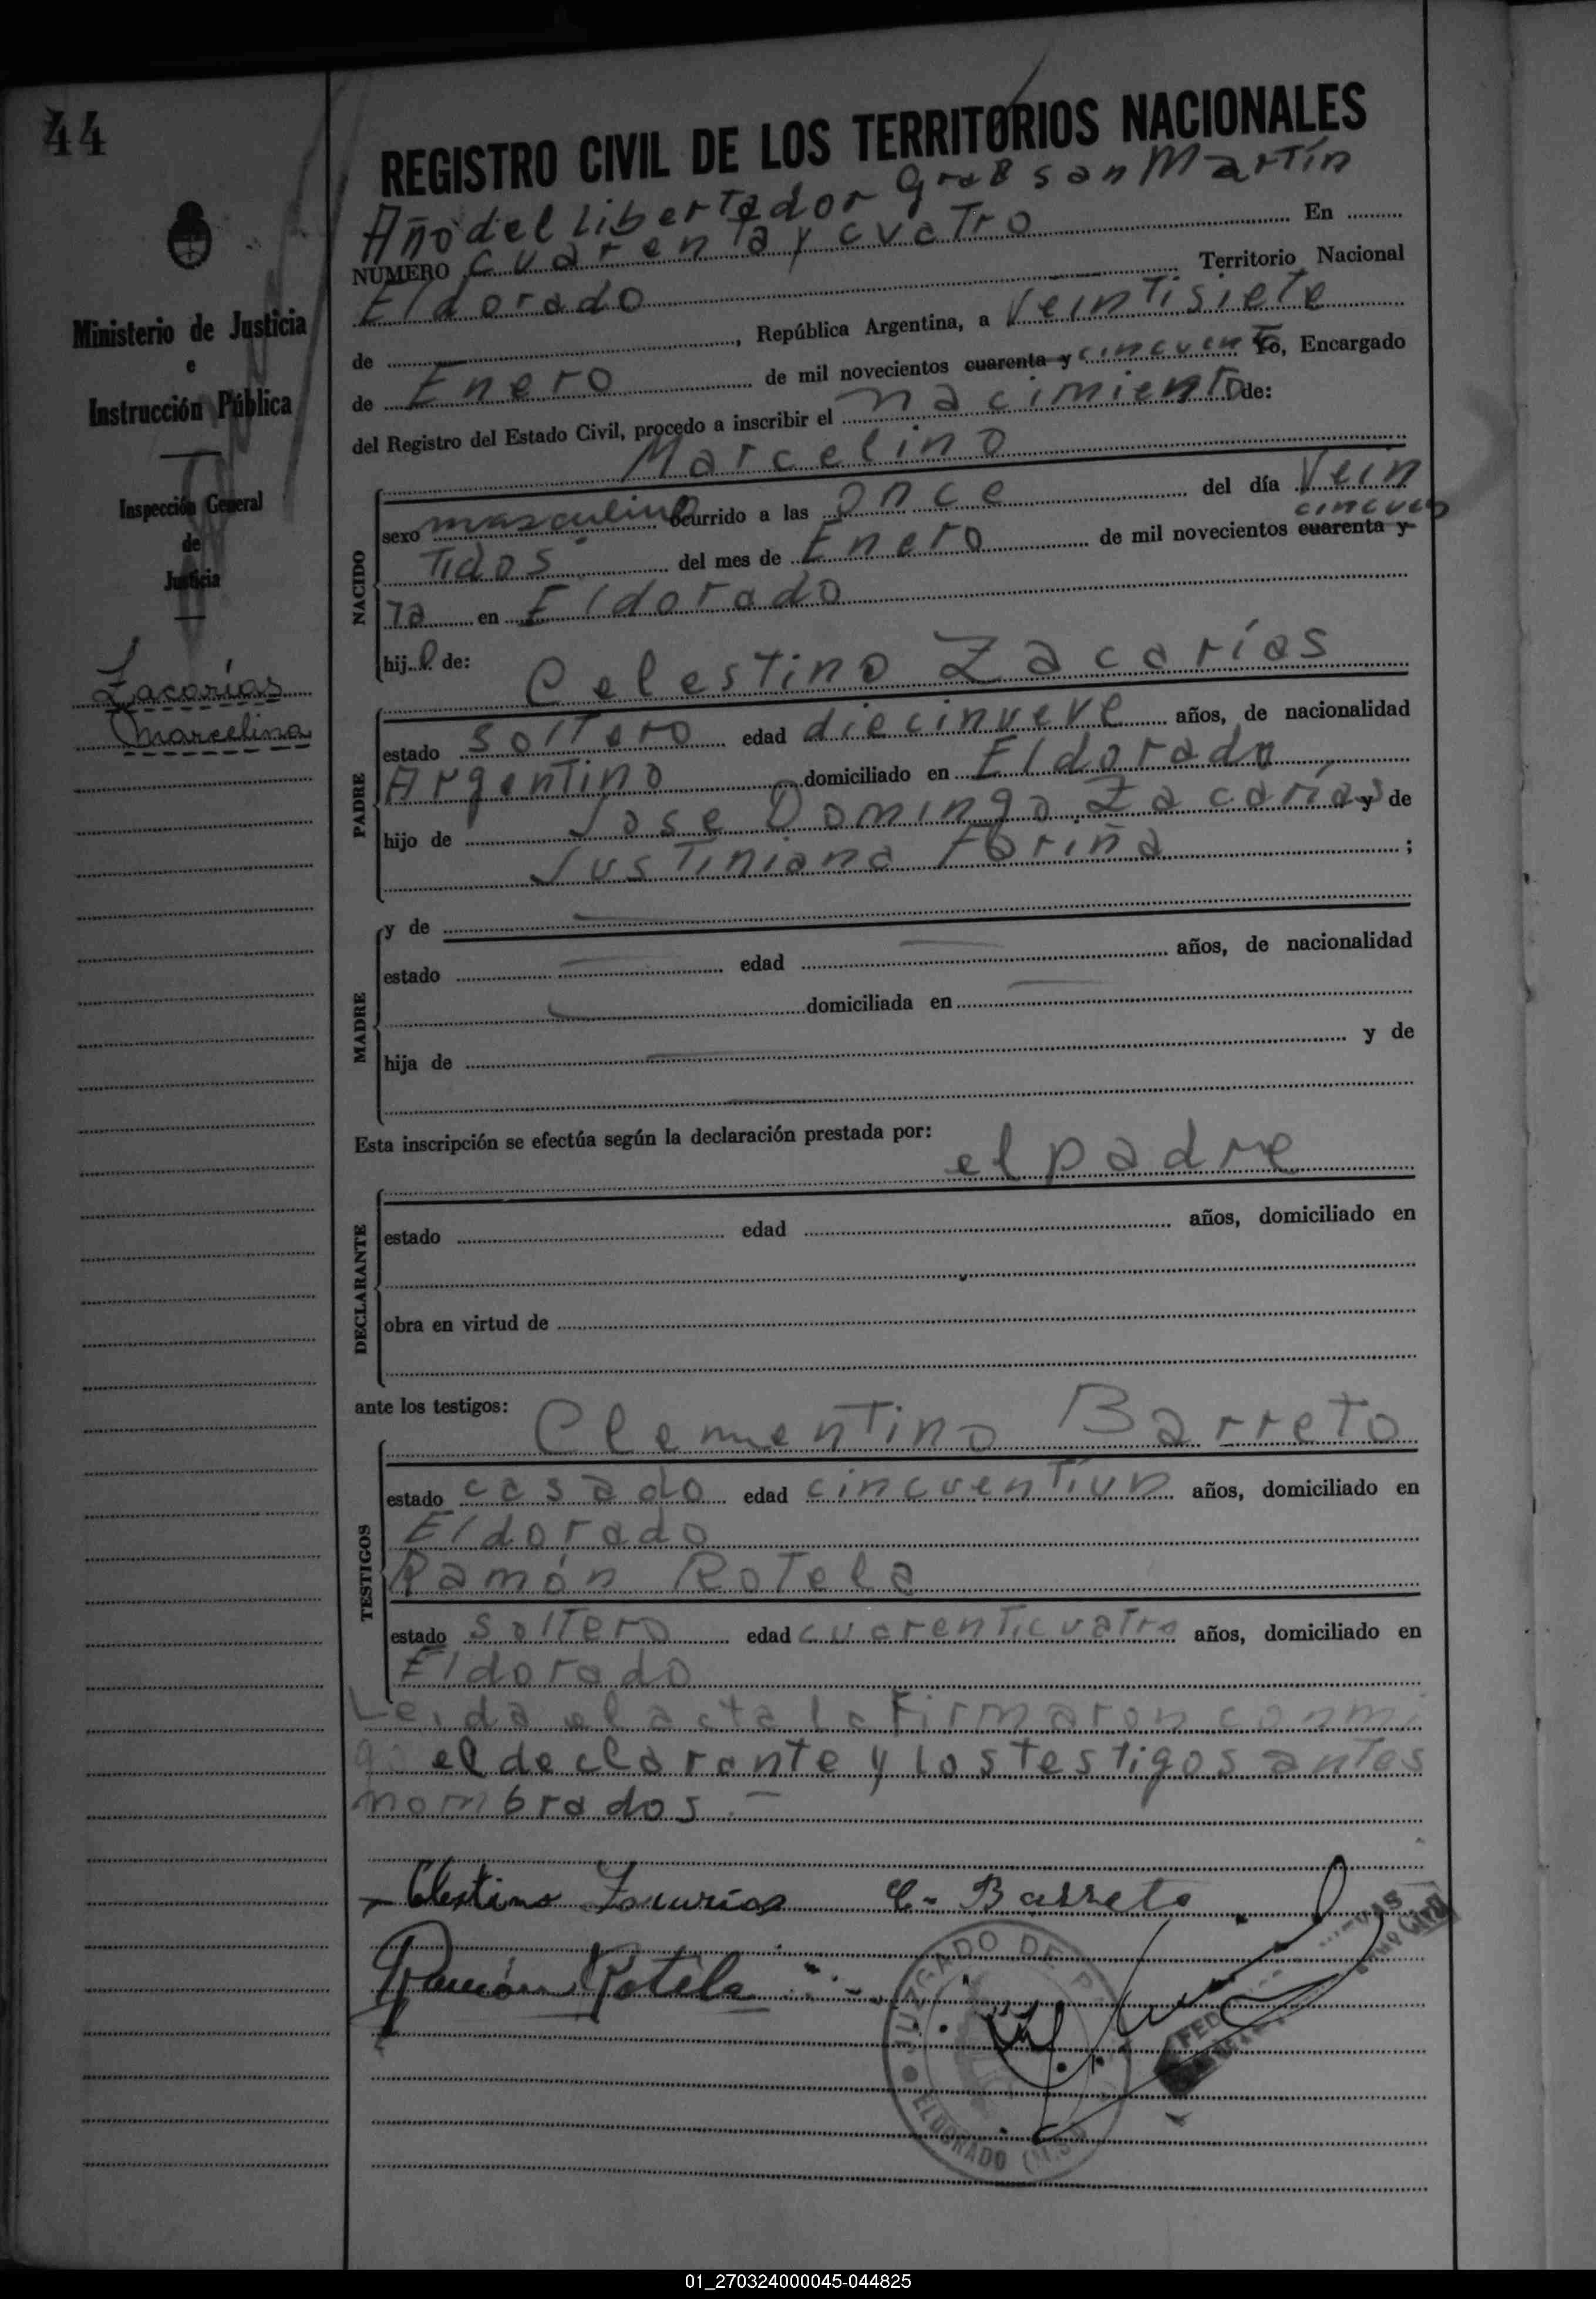 44
REGISTRO CIVIL DE LOS TERRITORIOS NACIONALES
Año del Libertador Gral San Martín
NUMERO cuarenta y cuatro En
Eldorado Territorio Nacional
de , República Argentina, a Veintisiete
de Enero de mil novecientos cuarenta y cincuenta Yo, Encargado
del Registro del Estado Civil, procedo a inscribir el nacimiento de:
Marcelino
Ministerio de Justicia
e
Instrucción Pública
Inspección General
de
Justicia
Zacarías
Marcelino
NACIDO
sexo masculino ocurrido a las once del día Vein
tidos del mes de Enero de mil novecientos cuarenta y cincuen
ta en Eldorado
hijo de: Celestino Zacarías
PADRE
estado soltero edad diecinueve años, de nacionalidad
Argentino domiciliado en Eldorado
hijo de Jose Domingo Zacarías y de
Justiniana Fariña ;
MADRE
y de
estado edad años, de nacionalidad
domiciliada en
hija de y de
Esta inscripción se efectúa según la declaración prestada por:
el padre
DECLARANTE
estado edad años, domiciliado en
obra en virtud de
ante los testigos:
Clementino Barreto
TESTIGOS
estado casado edad cincuentiun años, domiciliado en
Eldorado
Ramón Rotela
estado soltero edad cuarenticuatro años, domiciliado en
Eldorado
Leida el acta la firmaron conmi
go el declarante y los testigos antes
nombrados.-
Celestino Zacarías C. Barreto
Ramón Rotela
JUZGADO DE P
ELDORADO
01_270324000045-044825